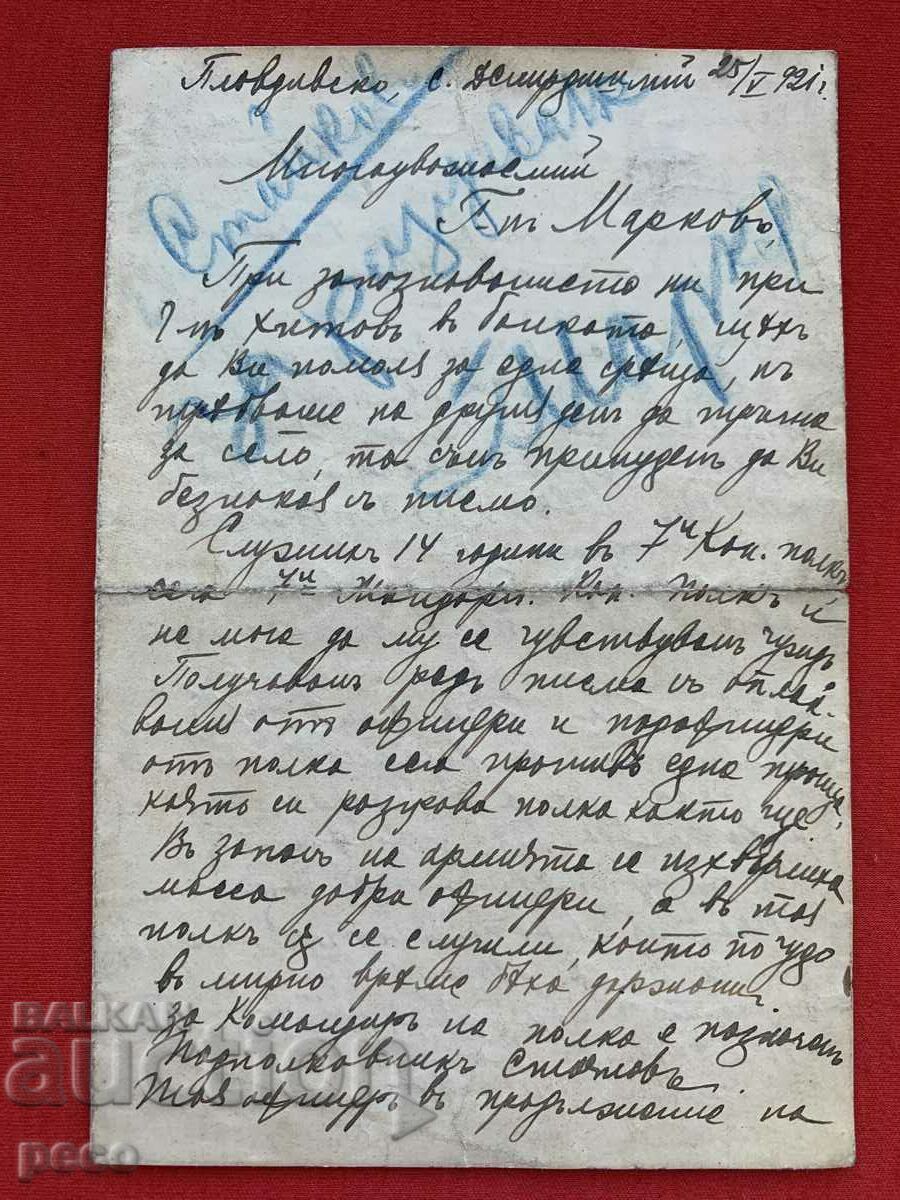 Пловдивско, с. 25/V 921 г.
Многоуважаемий
Г-нъ Марковъ,
При запознаванието ни при
Г-нъ Хитовъ в банката, щѣхъ
да Ви помоля за една срѣща, нъ
трѣбваше на другия день да тръгна
за село, та съмъ принуденъ да Ви
безпокоя съ писмо.
Служихъ 14 години в 7й Кон. полкъ
сега 7й Жандарм. Кон. Полкъ и
не мога да му се чувствувамъ чуждъ
Получавамъ редъ писма съ оплак-
вания отъ офицери и подофицери
отъ полка сега противъ една
която си полка както ще
Въ запасъ на армията се изхвърлиха
масса добри офицери, а въ тоя
полкъ се случили, които по чудо
въ мирно врѣме бѣха държани
За Командиръ на полка е назначенъ
Подполковникъ
Тоя офицеръ въ продължение на
BALKAN
auction
peco